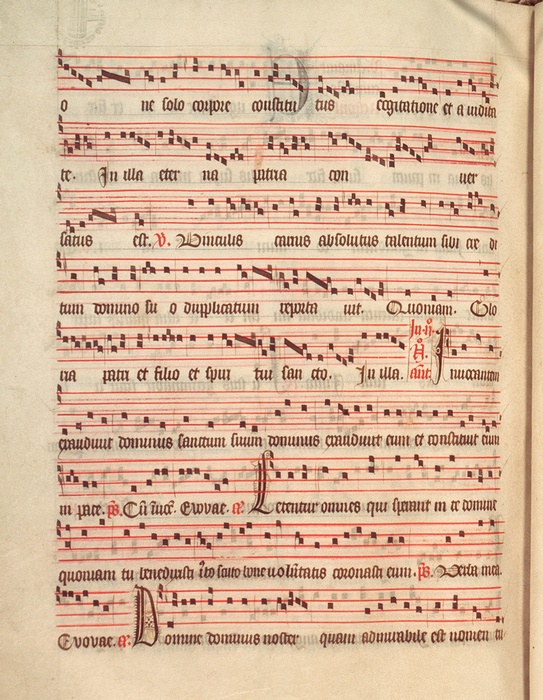 o ne solo corpore constitu tus cogitatione et a vidita
te. In illa eter na patria con ver
satus est. V. Vinculis carnis absolutus talentum sibi cre di
tum domino su o dupplicatum reporta vit. Quoniam. Glo
ria patri et filio et spiri tui san cto. In illa. In ii. no. añt. Invocantem
exaudivit dominus sanctum suum dominus exaudivit eum et constituit eum
in pace. ps. Cũ ĩvoc̃. Evovae. a. Letentur omnes qui sperant in te domine
quoniam tu benedixisti iusto scuto bone volũtatis coronasti eum. ps. Verba mea.
Evovae. a. Domine dominus noster quam admirabile est nomen tu